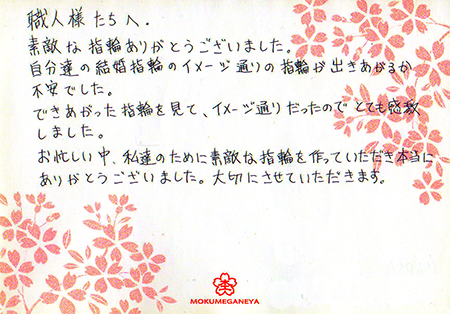 職人様たちへ.
素敵な指輪ありがとうございました。
自分達の結婚指輪のイメージ通りの指輪が出きあがるか
不安でした。
できあがった指輪を見て、イメージ通りだったのでとても感激
しました。
お忙しい中、私達のために素敵な指輪を作っていただき本当に
ありがとうございました。大切にさせていただきます。
MOKUMEGANEYA